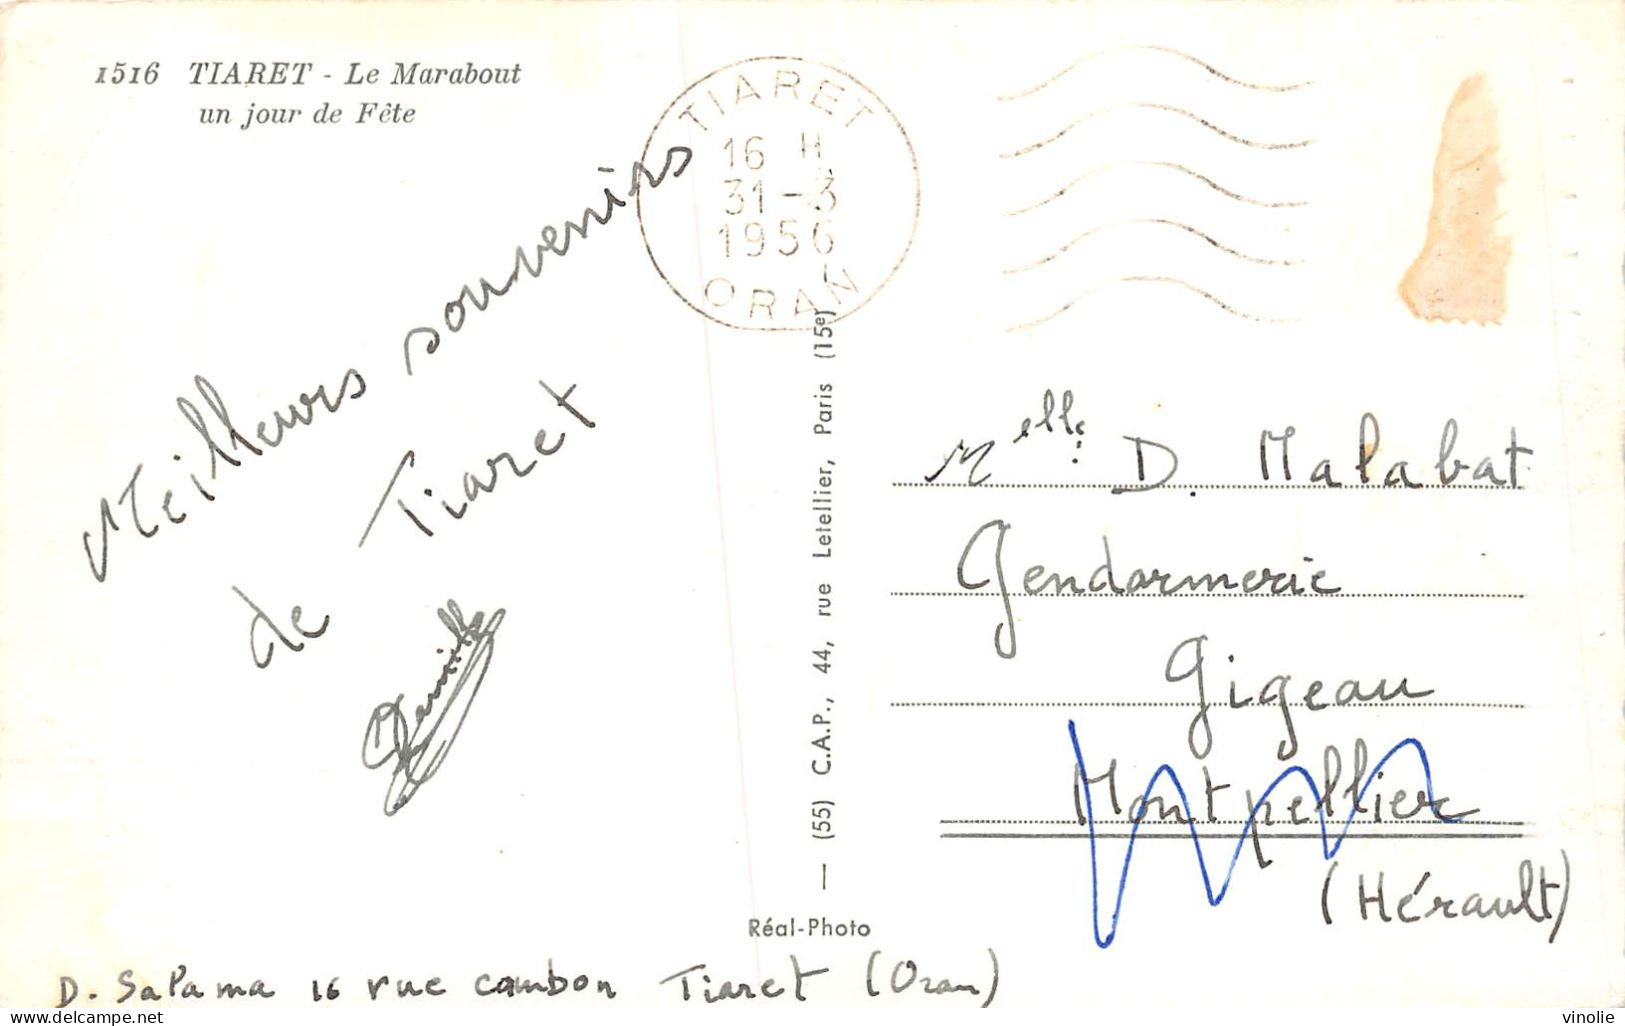 1516 TIARET - Le Marabout
un jour de Fête
TIARET
16 H
31-3
1956
ORAN
Meilleurs souvenirs
de Tiaret
(55) C.A.P., 44, rue Letellier, Paris (15e)
Réal-Photo
Melle D. Malabat
Gendarmerie
Gigeau
Montpellier
(Hérault)
D. Salama 16 rue cambon Tiaret (Oran)
delcampe.net
vinolie